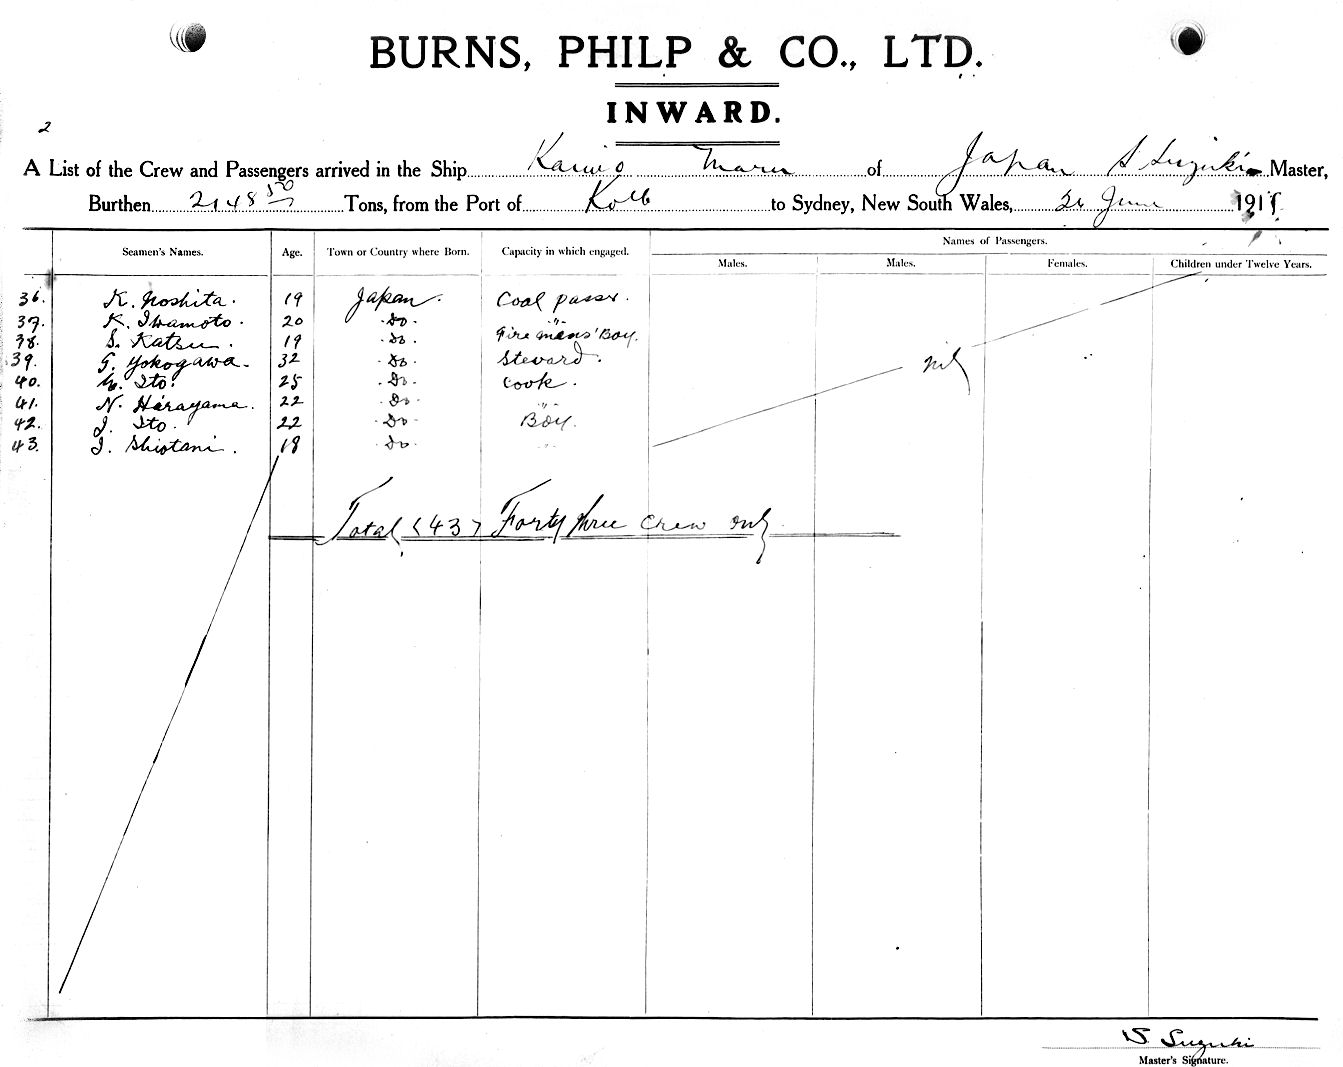 BURNS, PHILP & CO., LTD.
INWARD.
2
A List of the Crew and Passengers arrived in the Ship Maru of Japan S Suzuki Master,
Burthen 2148 50 Tons, from the Port of Kobe to Sydney, New South Wales, June 191
Names of Passengers.
Seamen's Names. Age. Town or Country where Born. Capacity in which engaged. Males. Males. Females. Children under Twelve Years.
36. K. Noshita. 19 Japan. Coal passr.
37. K. Iwamoto. 20 Do. "
38. S. Katsu. 19 Do. Firemans' Boy.
39. G. Yokogawa. 32 Do. Steward. nil
40. Ito. 25 Do. Cook.
41. N. Hirayama. 22 Do. "
42. J. Ito. 22 Do. Boy.
43. J. Shiotani. 18 Do. "
Total (43) Forty three crew only
S. Suzuki
Master's Signature.